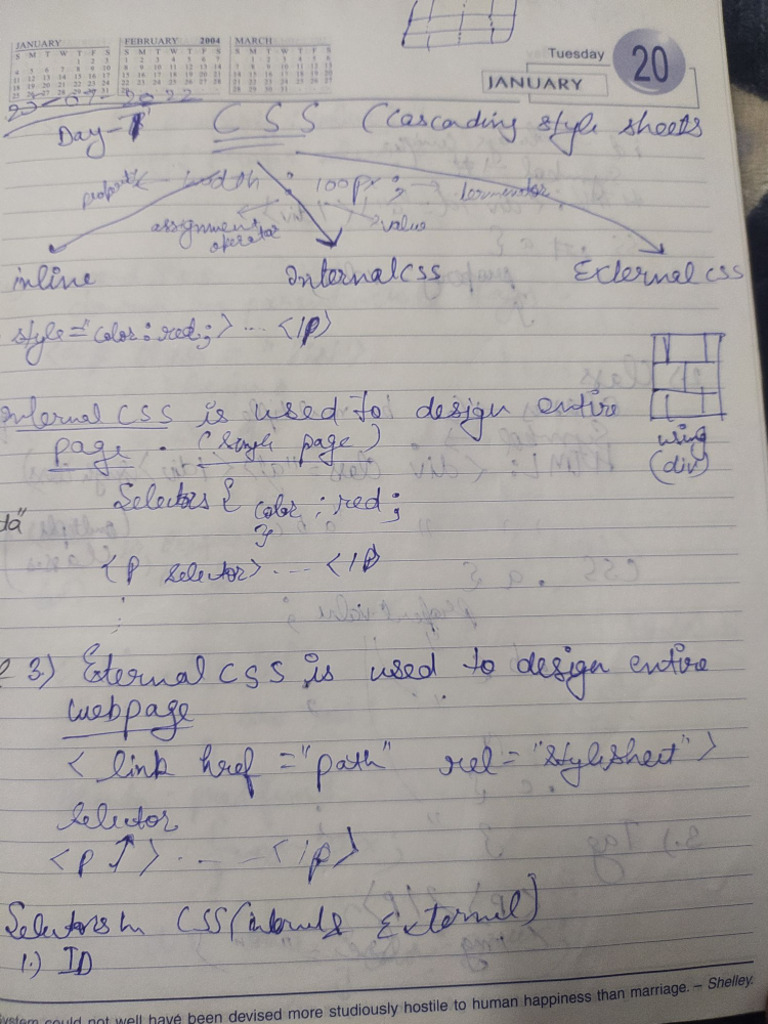 JANUARY FEBRUARY 2004 MARCH
Tuesday 20
JANUARY
Day-1 CSS (Cascading style sheets
width : 100px ; → terminator
assignment operator value
inline Internal CSS External css
style="color:red;> ... </p>
Internal CSS is used to design entire
page . (single page)
using
(div)
Selectors { color : red ;
}
<P selector> ... </P
3.) Eternal CSS is used to design entire
webpage
< link href ="path" rel = "stylesheet" >
selector
<P ↑> ... </p>
Selectors in CSS (internal & External)
1.) ID
System could not well have been devised more studiously hostile to human happiness than marriage. – Shelley.